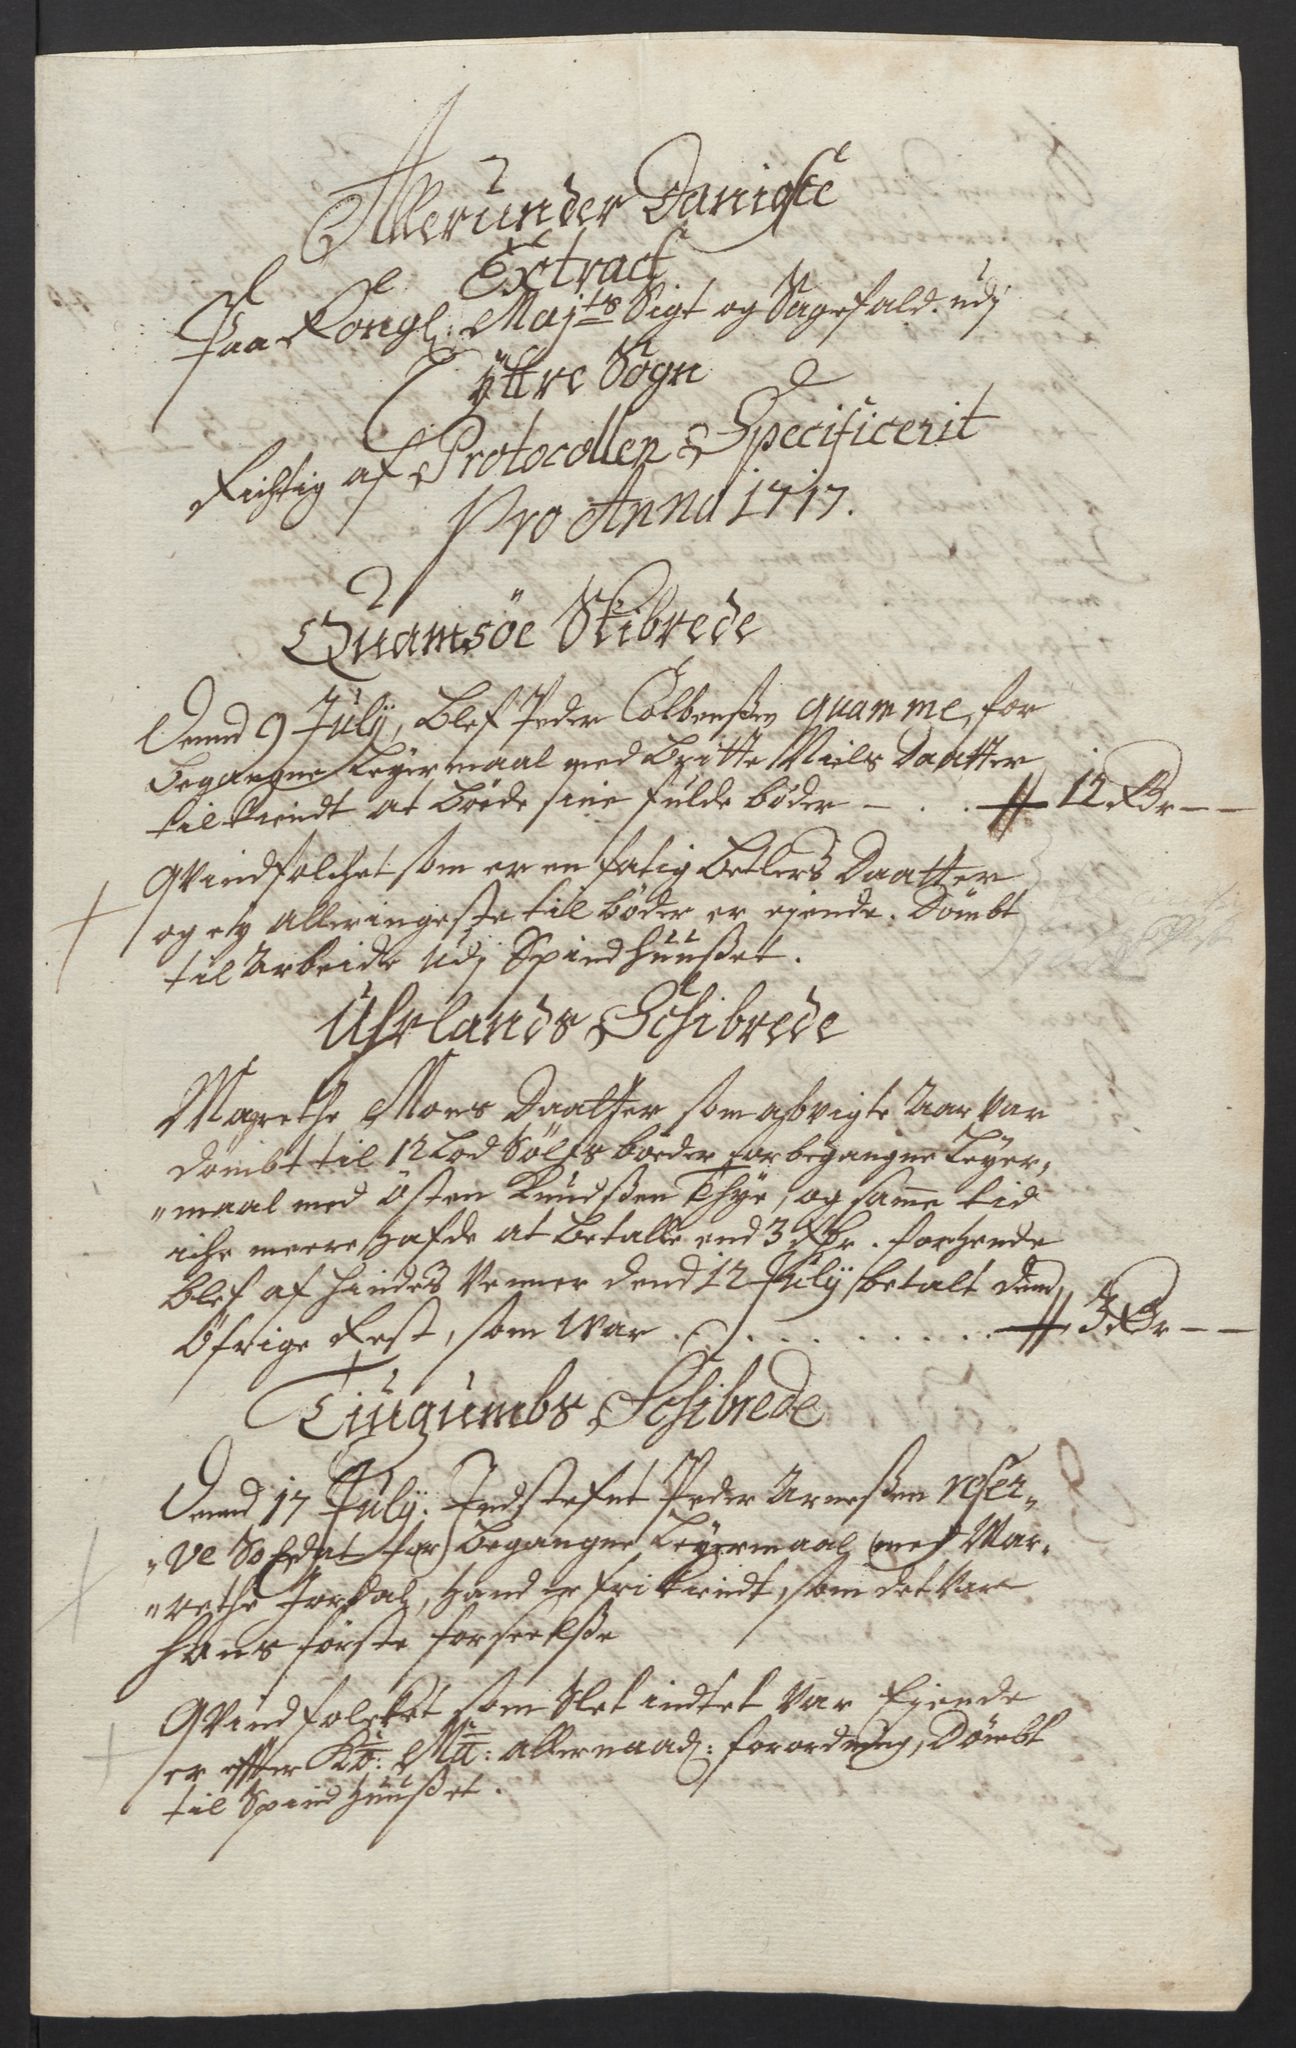 Allerunder Danigste
Extract
Paa Kongl: Majts Sigt og Sagefald udj
Yttre Sogn
Rigtig af Protocollen Specificerit
Pro Anno 1717.
Quamsöe Skibrede
Dend 9 July, blef Peder Colbensßen quamme, for
begangne Leyermaal med Britte Niels Daatter
tilkiendt at bröde sine fulde böder — . . . 12 Rdr — —
Qvindfolchet som er en fatig Betlers Daatter
og ey allerringeste til böder er eyende. Dömbt
til Arbeide udj Spindhuußet.
Uhrlands Schibrede
Magrethe Mons Daatter som afvigte Aar var
dömbt til 12 Lod Sölfs böder for begangne Leyer„
„maal med Östen Knudßen Thye, og samme tid
iche meere hafde at betalle end 3 Rdr. forhende
blef af hindes Venner dend 12 July betalt dend
Öfrige Rest, som War . . . . . . . . . 3 Rdr — —
Tiugumbs Schibrede
Dend 17 July: Indstefnt Peder Arneßen reser„
„ve Soldat for begangne Leyermaal med Mar„
„rethe Jordal, hand er frikiendt, som det var
hans förste forseelße
Qvindfolcket som Slet indtet var Eyende
er effter Ko: Ma: allernaad: forordning, Dömbt
til Spindhuußet.